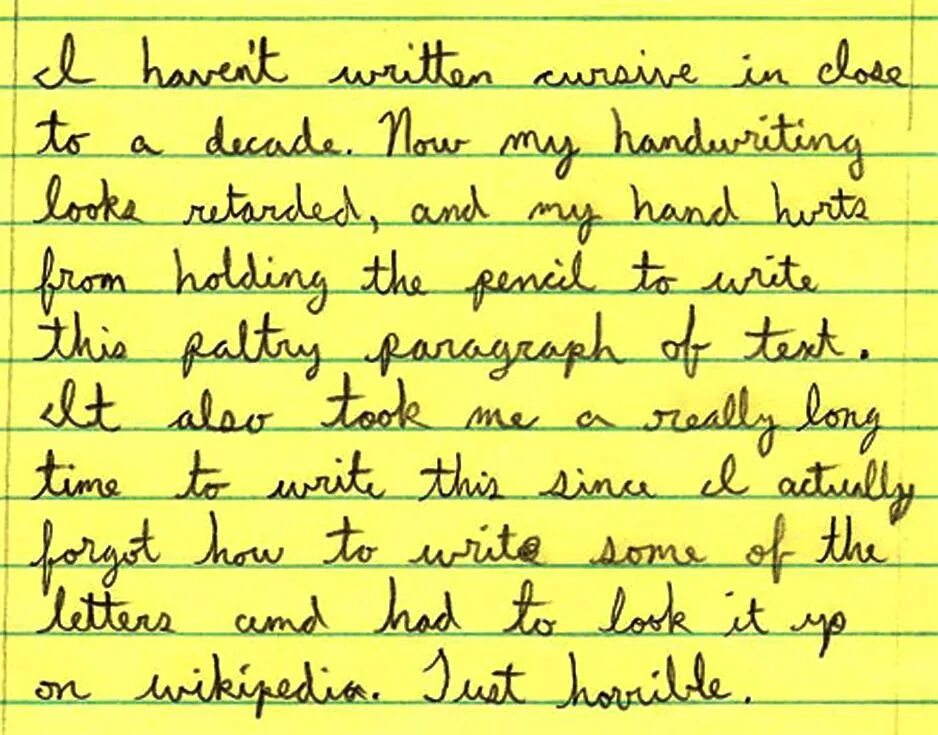 I haven't written cursive in close
to a decade. Now my handwriting
looks retarded, and my hand hurts
from holding the pencil to write
this paltry paragraph of text.
It also took me a really long
time to write this since I actually
forgot how to write some of the
letters amd had to look it up
on wikipedia. Just horrible.